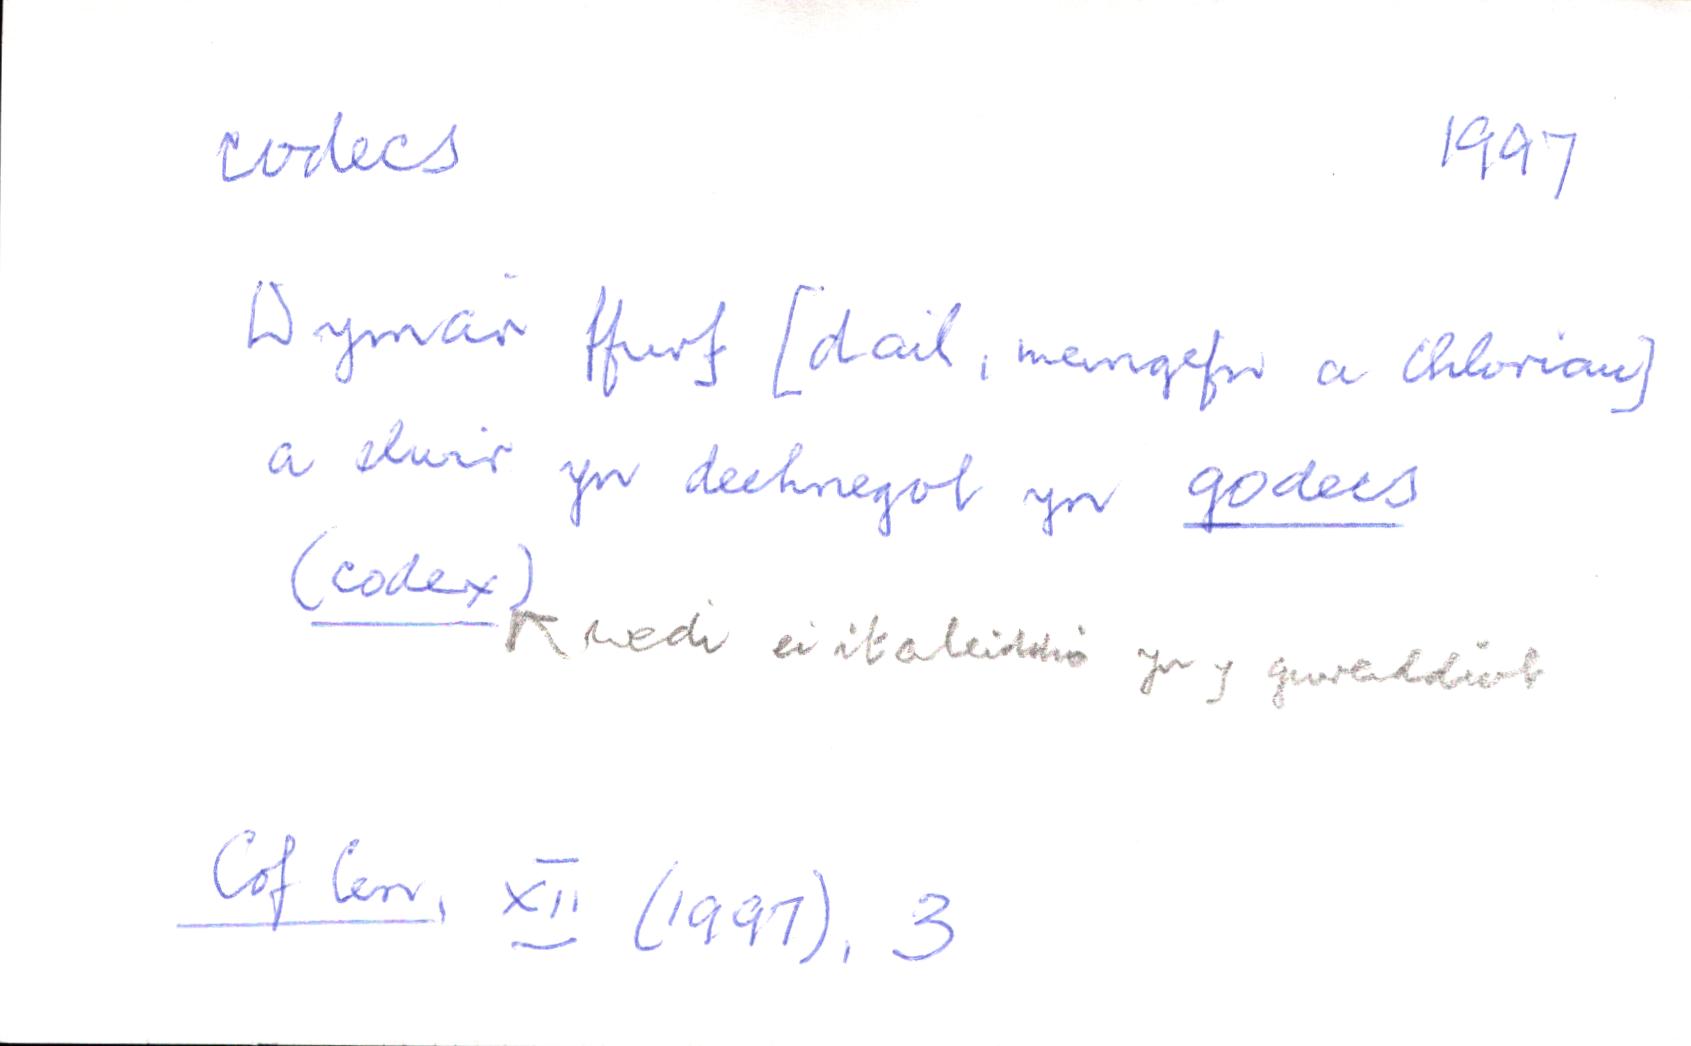 codecs 1997
Dyma'r ffurf [dail, meingefn a chloriau]
a elwir yn dechnegol yn godecs
(codex)
↖ wedi ei italeiddio yn y gwreiddiol
Cof Cen, XII (1997), 3